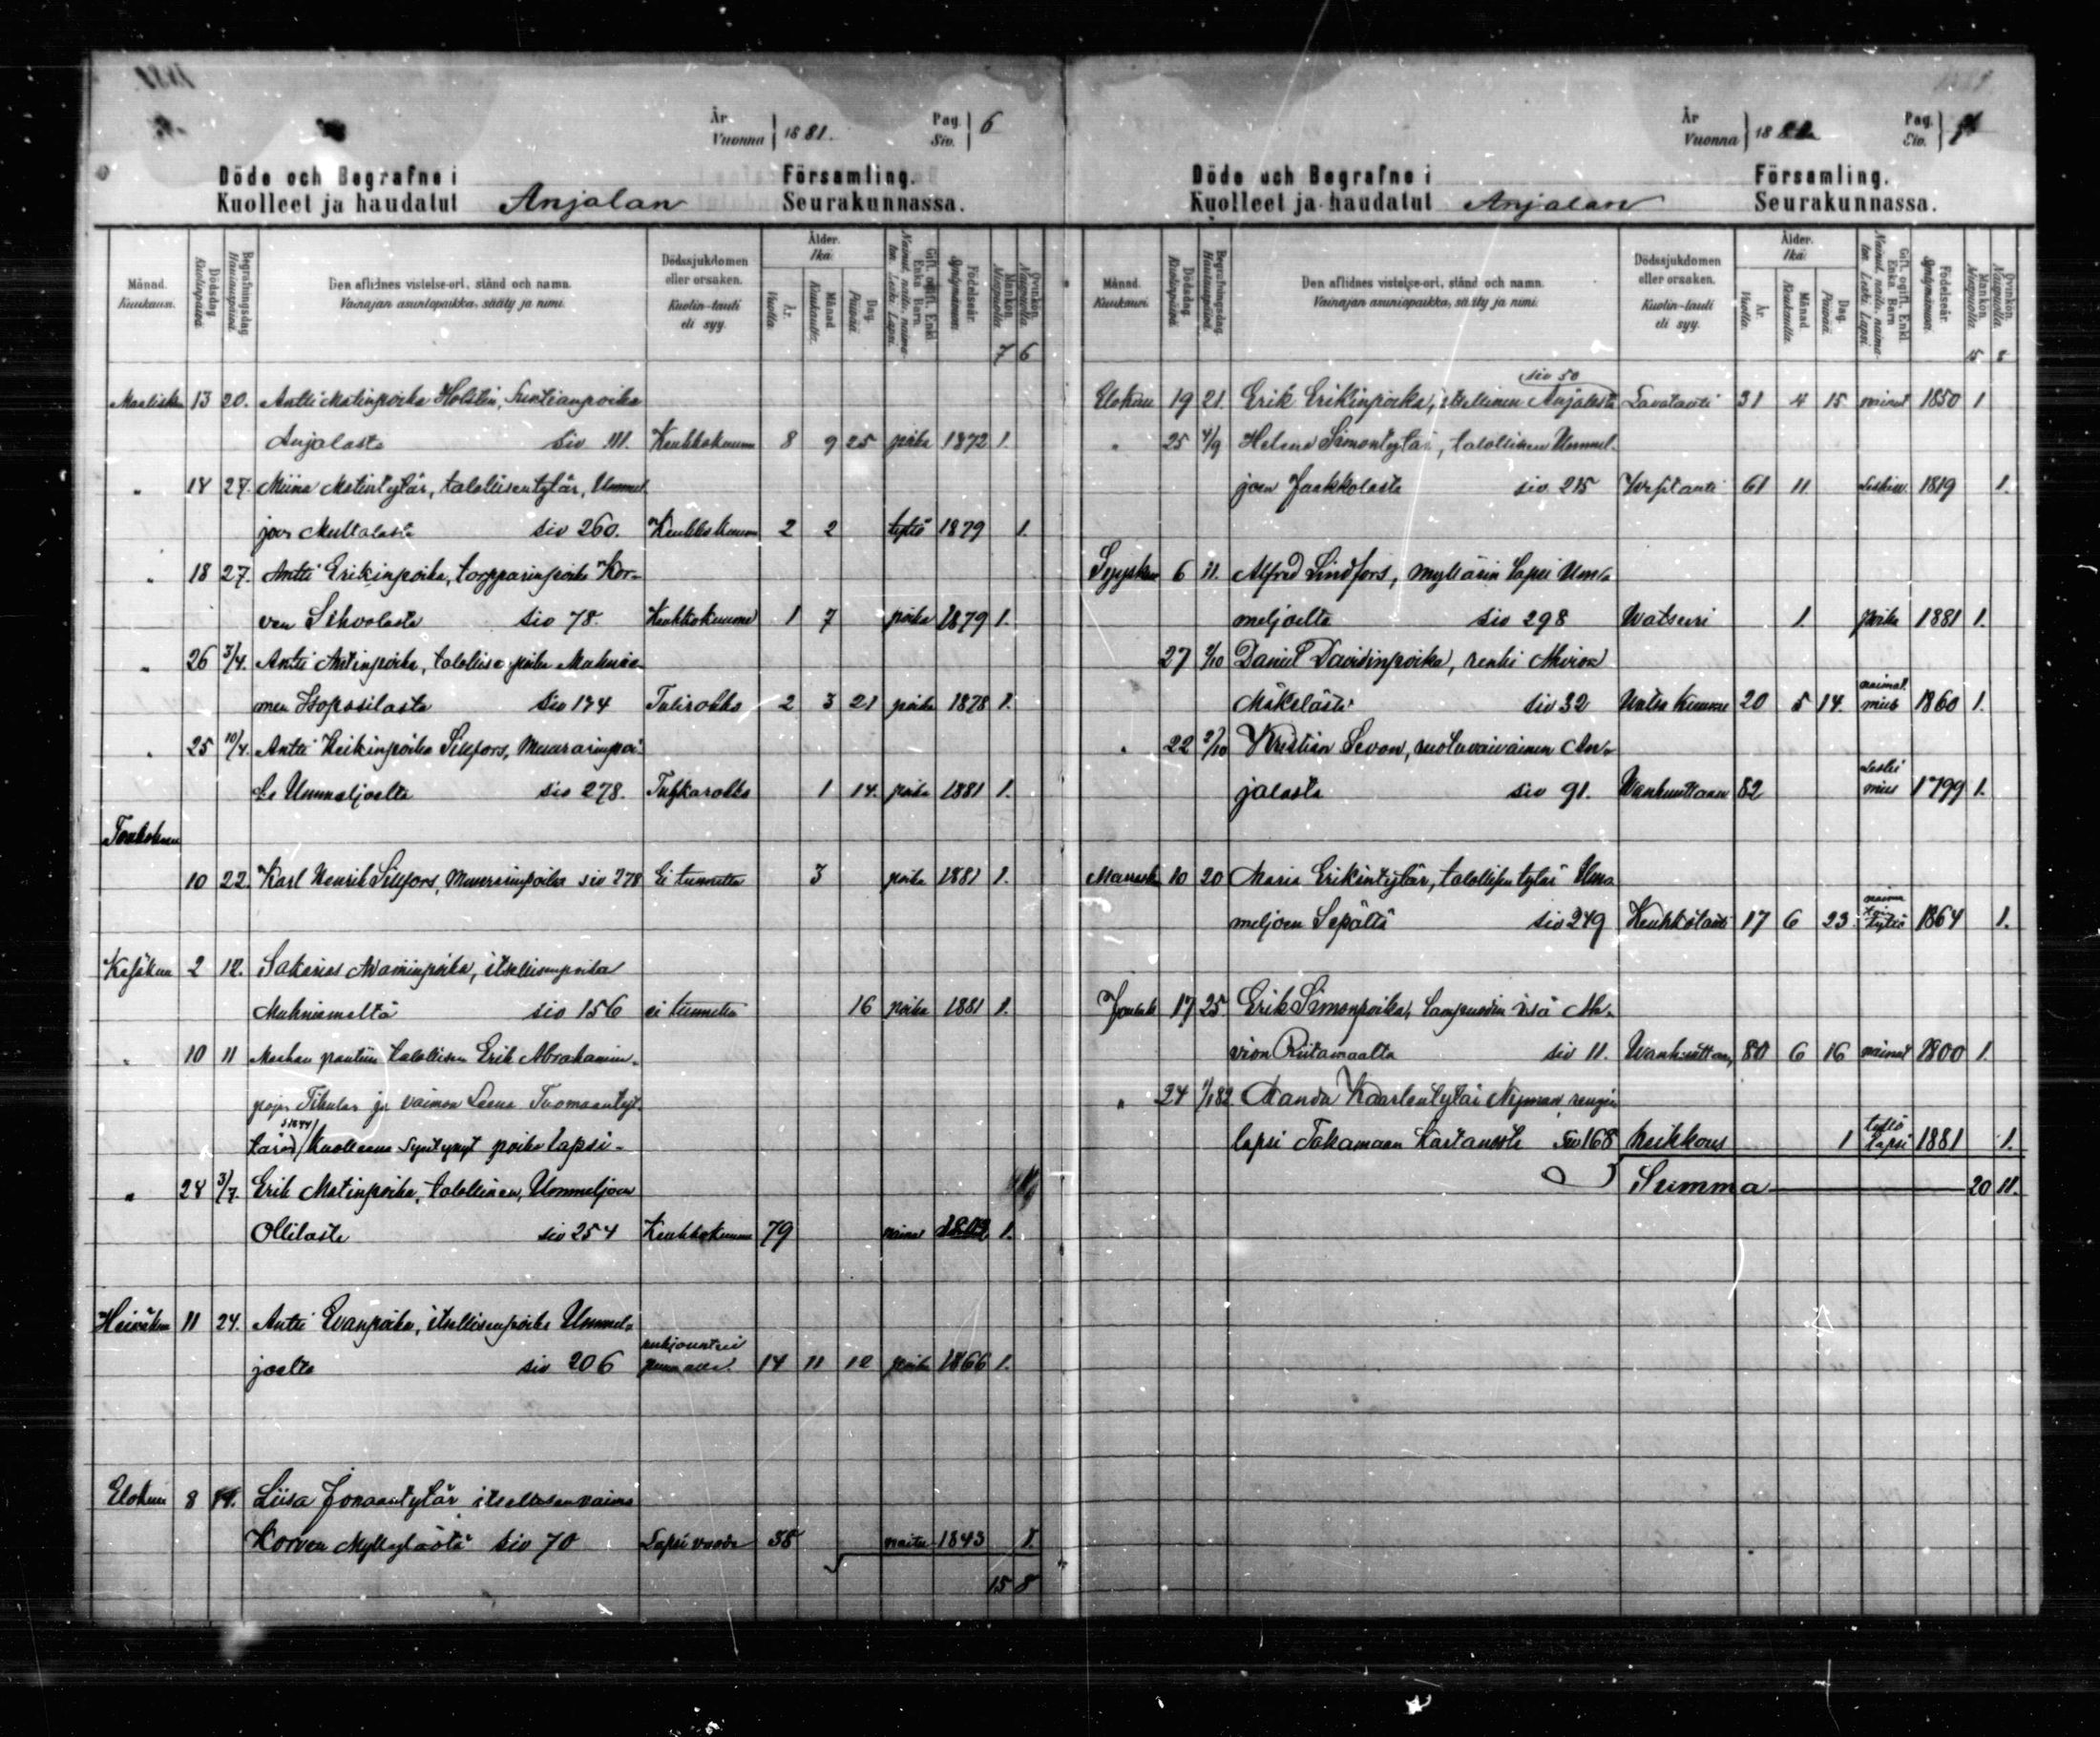 År Vuonna 1881. Pag. Siv. 6
Döde och Begrafne i Församling.
Kuolleet ja haudatut Anjalan Seurakunnassa.
Månad. Kuukausi. Dödsdag. Kuolinpäivä. Begrafningsdag. Hautauspäivä. Den aflidnes vistelse-ort, stånd och namn. Vainajan asuntopaikka, sääty ja nimi. Dödssjukdomen eller orsaken. Kuolin-tauti eli syy. Ålder. Ikä. År. Vuotta. Månad. Kuukautta. Dag. Päivää. Gift, ogift, Enkl. Enka Barn. Födelseår. Syntymävuosi. Mankön. Miespuolia. Qvinkön. Naispuolia.
7 6
Maalisku 13 20. Antti Matinpoika Holstin, Suntianpoika
Anjalasta siv 111. Keuhkokuume 8 9 25 poika 1872 1.
" 18 27. Miina Matintytär, talollisentytär, Ummel
joen Multalasta siv 260. Keuhkokuume 2 2 tyttö 1879 1.
" 18 27. Antti Erikinpoika, torpparinpoika Kor-
ven Sihvolasta siv 78. Keuhkokuume 1 7 poika 1879 1.
" 26 3/4. Antti Antinpoika, talollisenpoika Muhnie-
men siv 194 Tulirokko 2 3 21 poika 1878 1.
" 25 10/4. Antti Heikinpoika Silfors, Muurarinpoi-
ka Ummeljoelta siv 278. Tuhkarokko 1 14. poika 1881 1.
Toukokuu
10 22. Karl Henrik Silfors, Muurarinpoika siv 278 Ei tunnettu 3 poika 1881 1.
Kesäkuu 2 12. Sakarias Adaminpoika, itsellisenpoika
Muhniemeltä siv 156 ei tunnettu 16 poika 1881 1.
" 10 11 Maahan pantiin talollisen Erik Abrahamin-
pojan Tikulan ja vaimon Leena Tuomaantyt-
tären Kuolleena syntynyt poika lapsi-
" 28 3/7. Erik Matinpoika, talollinen, Ummeljoen
Ollilasta siv 254 Keuhkokuume 79 nainut 1802 1.
Heinäkuu 11 24. Antti Evanpoika, itsellisenpoika Ummel-
joelta siv 206 14 11 12 poika 1866 1.
Elokuu 8 14. Liisa Joonaantytär itsellisenvaimo
Korven Myllylästä siv 70 Lapsi vuode 38 naitu 1843 1.
15 8
År Vuonna 1881 Pag. Siv. 7
Döde och Begrafne i Församling.
Kuolleet ja haudatut Anjalan Seurakunnassa.
Månad. Kuukausi. Dödsdag. Kuolinpäivä. Begrafningsdag. Hautauspäivä. Den aflidnes vistelse-ort, stånd och namn. Vainajan asuntopaikka, sääty ja nimi. Dödssjukdomen eller orsaken. Kuolin-tauti eli syy. Ålder. Ikä. År. Vuotta. Månad. Kuukautta. Dag. Päivää. Gift, ogift, Enkl. Enka Barn. Födelseår. Syntymävuosi. Mankön. Miespuolia. Qvinkön. Naispuolia.
15 8
siv 50
Elokuu 19 21. Erik Erikinpoika, itsellinen Anjalasta Lavatauti 31 4 15 nainut 1850 1
" 25 4/9 Helena Simontytär, talollinen Ummel-
joen Jaakkolasta siv 215 Wesitauti 61 11. Leski v. 1819 1.
Syyskuu 6 11. Alfred Lindfors, myllärin lapsi Um-
meljoelta siv 298 Watsuri 1. poika 1881 1.
27 2/10 Daniel Davidinpoika, renki
Mäkelästä siv 32 Watsa Kuume 20 5 14. naimat. mies 1860 1.
" 22 2/10 Kristian Levon, ruotuvaivainen An-
jalasta siv 91. Wanhuuttaan 82 Leski mies 1799 1.
Marrask 10 20 Maria Erikintytär, talollisen tytär Um-
meljoen Sepältä siv 249 Keuhkotauti 17 6 23 tyttö 1864 1.
Jouluk 17 25 Erik Simonpoika, lampuodin isä
vion Riitamaalta siv 11. Wanhuuttaan, 80 6 16 nainut 1800 1.
" 24 1/1 82. Manda Kaarlentytär Nyman, rengin
lapsi Takamaan Kartanosta siv 168 Heikkous 1 tyttö lapsi 1881 1.
Summa 20 11.